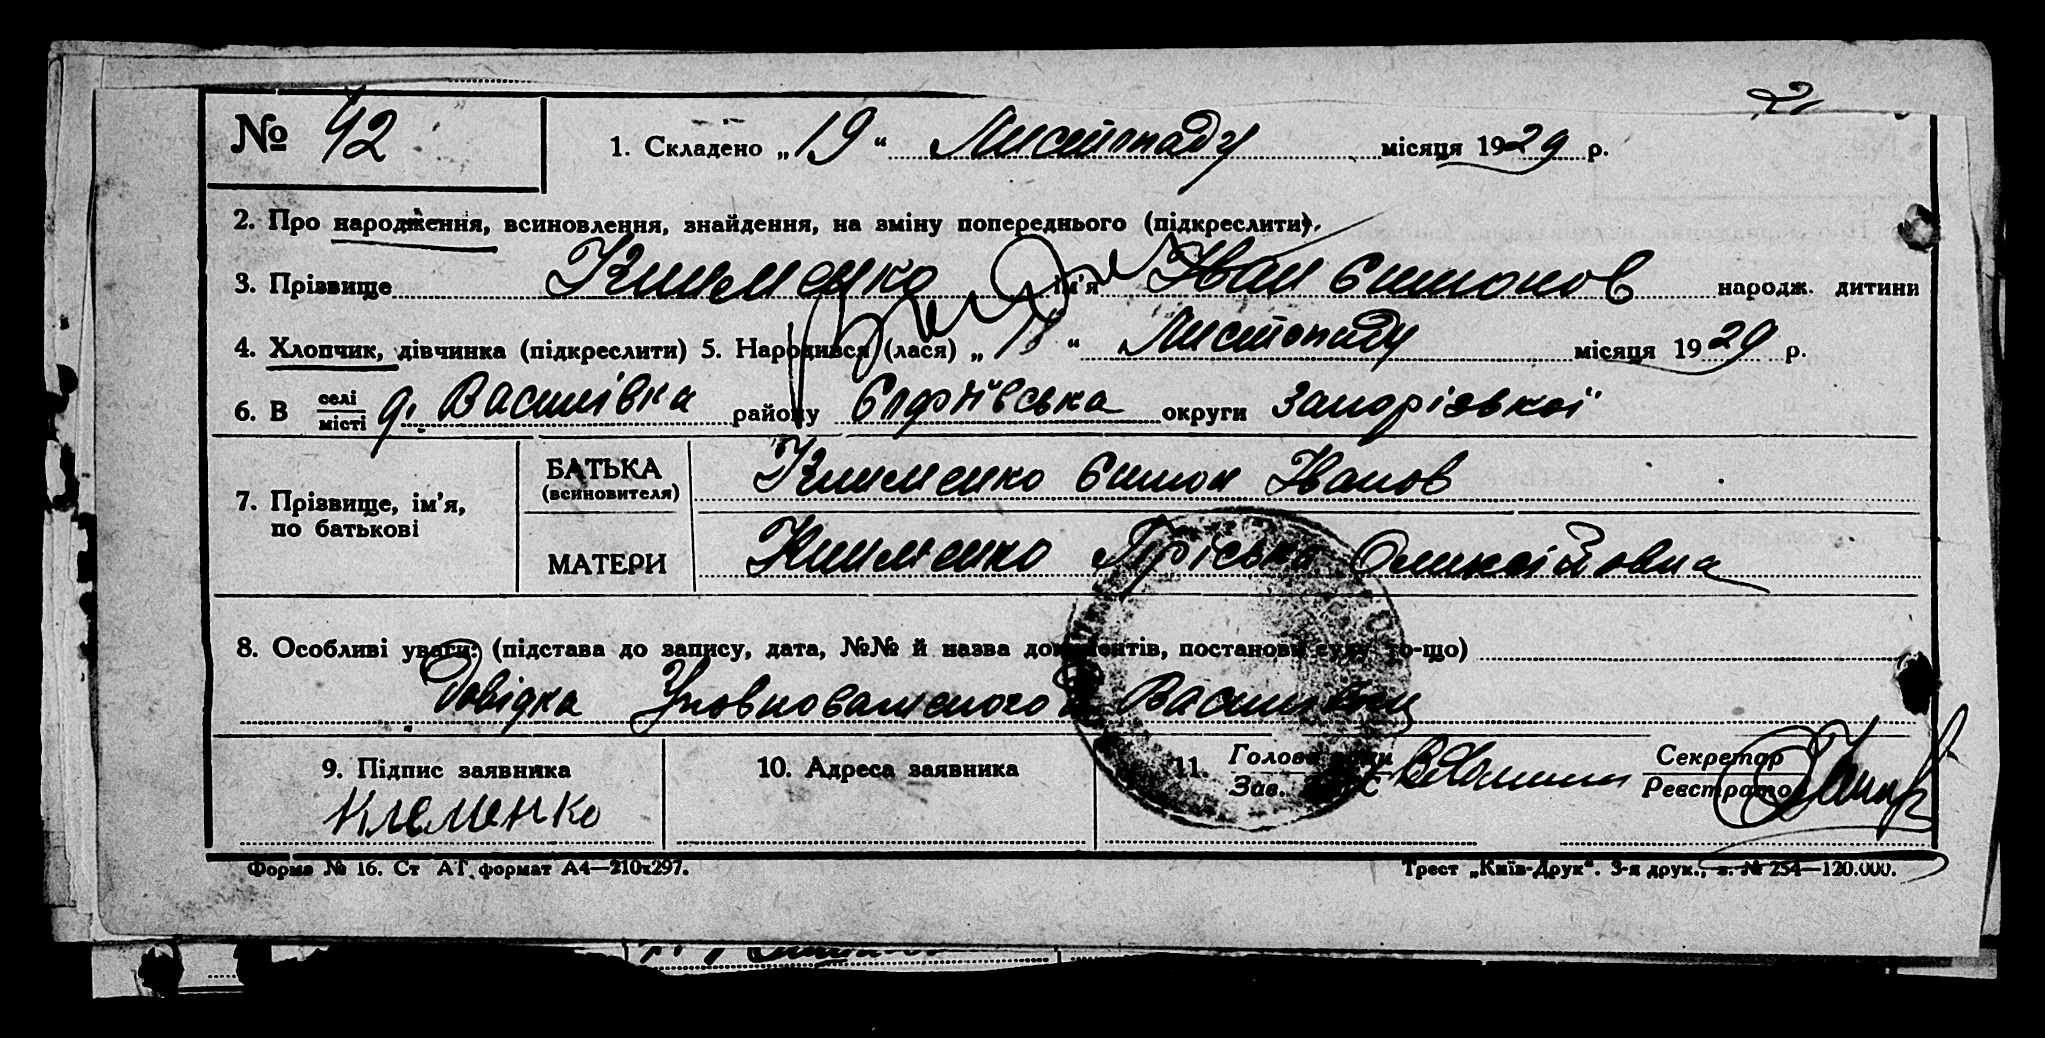 21
№ 42
1. Складено „19“ Листопаду місяця 1929 р.
2. Про народження, всиновлення, знайдення, на зміну попереднього (підкреслити).
3. Прізвище Клименко ім'я Іван Єпшонов народж. дитини
4. Хлопчик, дівчинка (підкреслити) 5. Народився (лася) „ “ Листопаду місяця 1929 р.
6. В селі місті д. Василівка району Софиївська округи Запорізької
7. Прізвище, ім'я, по батькові
БАТЬКА (всиновителя) Клименко Иванов
МАТЕРИ Клименко Олексіївна
8. Особливі уваги: (підстава до запису, дата, №№ й назва документів, постанови суду то-що)
Довідка Уповноваженого Василівки
9. Підпис заявника
Клеменко
10. Адреса заявника
11. Голова Зав.
Секретар Реєстратор
Форма № 16. Ст АТ, формат А4—210х297.
Трест „Київ-Друк“. 3-я друк., з. № 254—120.000.